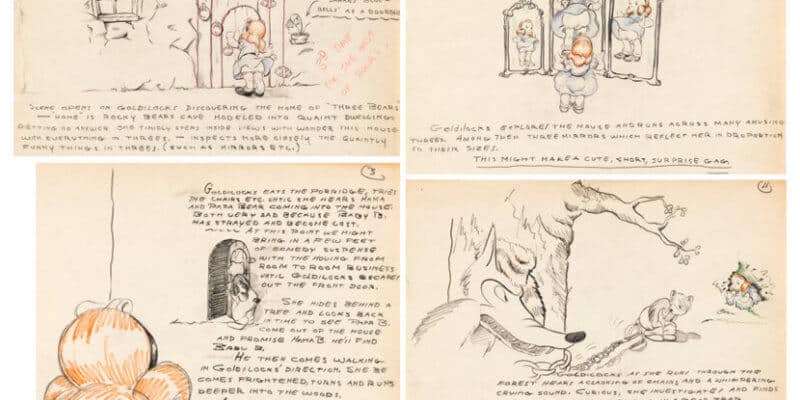 BELLS" AS A DOORBELL
SCENE OPENS ON GOLDILOCKS DISCOVERING THE HOME OF "THREE BEARS"
— HOME IS ROCKY BEARS CAVE MODELED INTO QUAINT DWELLING
GETTING NO ANSWER SHE TIMIDLY STEPS INSIDE VIEWS WITH WONDER THIS HOUSE
WITH EVERYTHING IN THREES. — INSPECTS MORE CLOSELY THE QUAINTLY
FUNNY THINGS IN THREES. (SUCH AS MIRRORS ETC.)
GOLDILOCKS EXPLORES THE HOUSE AND RUNS ACROSS MANY AMUSING
THREES AMONG THEM THREE MIRRORS WHICH REFLECT HER IN PROPORTION
TO THEIR SIZES.
THIS MIGHT MAKE A CUTE, SHORT, SURPRISE GAG
3
GOLDILOCKS EATS THE PORRIDGE, TRIES
THE CHAIRS ETC. UNTIL SHE HEARS MAMA
AND PAPA BEAR COMING INTO THE HOUSE.
BOTH VERY SAD BECAUSE BABY B.
HAS STRAYED AND BECOME LOST.
AT THIS POINT WE MIGHT
BRING IN A FEW FEET
OF COMEDY SUSPENSE
WITH THE MOVING FROM
ROOM TO ROOM BUSINESS
UNTIL GOLDILOCKS ESCAPES
OUT THE FRONT DOOR.
SHE HIDES BEHIND A
TREE AND LOOKS BACK
IN TIME TO SEE PAPA B.
COME OUT OF THE HOUSE
AND PROMISE MAMA B. HE'LL FIND
BABY B.
HE THEN COMES WALKING
IN GOLDILOCKS' DIRECTION. SHE BE
COMES FRIGHTENED, TURNS AND RUNS
DEEPER INTO THE WOODS.
4
GOLDILOCKS AS SHE RUNS THROUGH THE
FOREST HEARS A CLASHING OF CHAINS AND A WHIMPERING
CRYING SOUND. CURIOUS, SHE INVESTIGATES AND FINDS